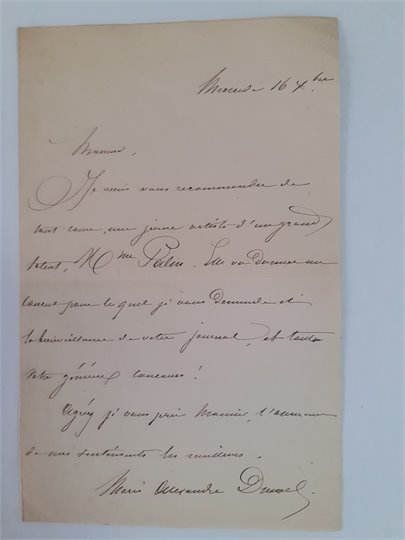 Mercredi 16 Xbre
Monsieur,
Je viens vous recommander de
tout cœur, une jeune artiste d'un grand
talent, Mme Palm. Elle va donner un
concert pour le quel je vous demande et
la bienveillance de votre journal, et tout
votre généreux concours!
Agréez je vous prie Monsieur, l'assurance
de mes sentiments les meilleurs.
Marie Alexandre Dumas